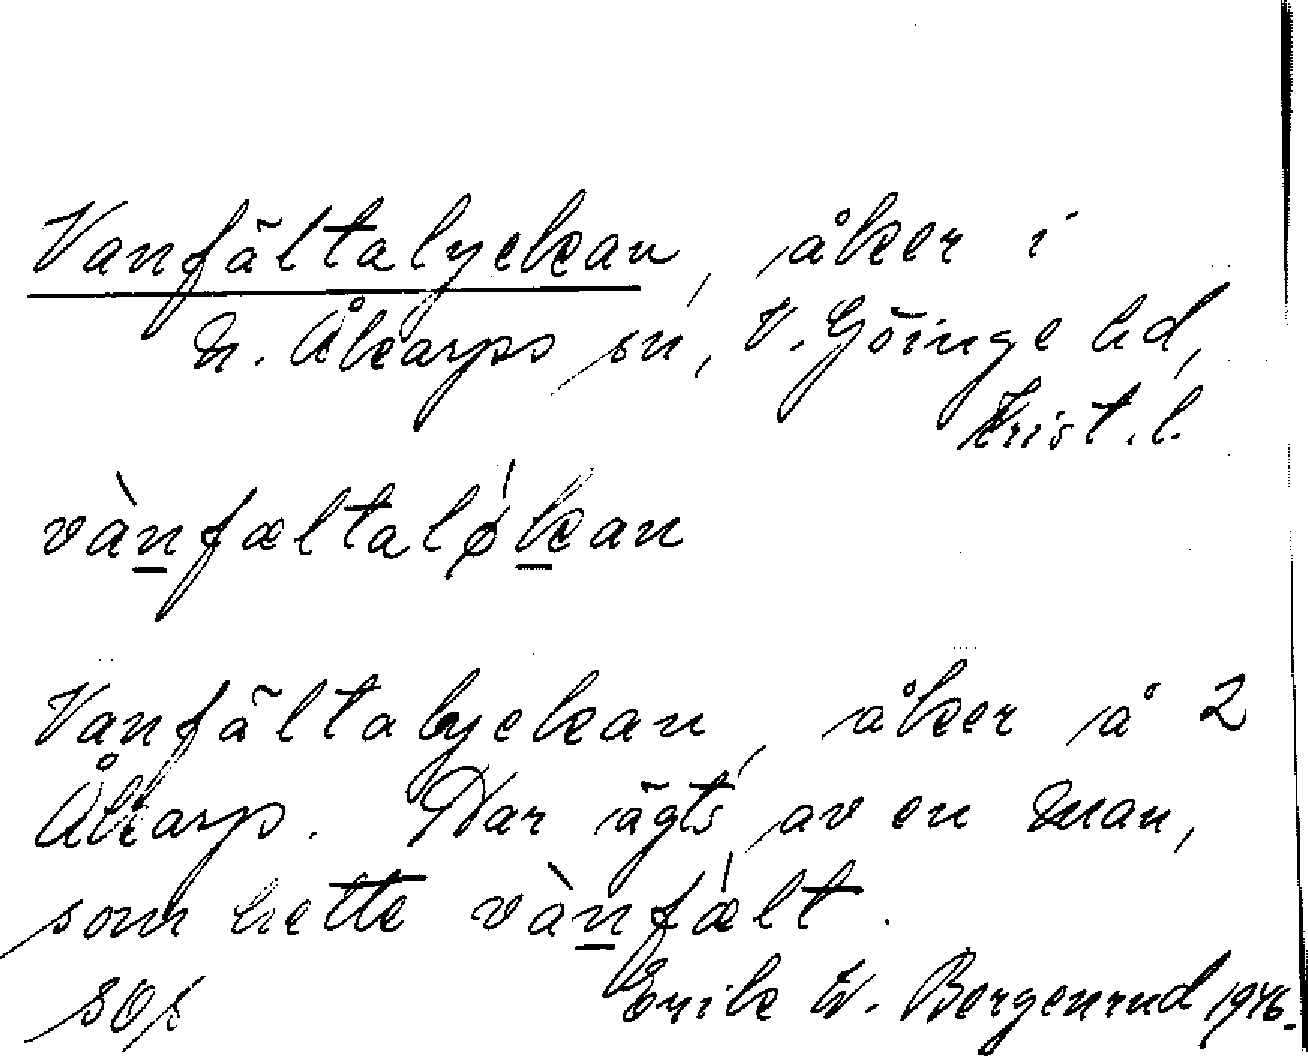 Vanfältalyckan, åker i
N. Åkarps sn, V. Göinge hd,
Krist. l.
vànfæltaløkan
Vanfältalyckan, åker å 2
Åkarp. Har ägts av en man,
som hette vànfælt.
Erik W. Bergenrud 1946.